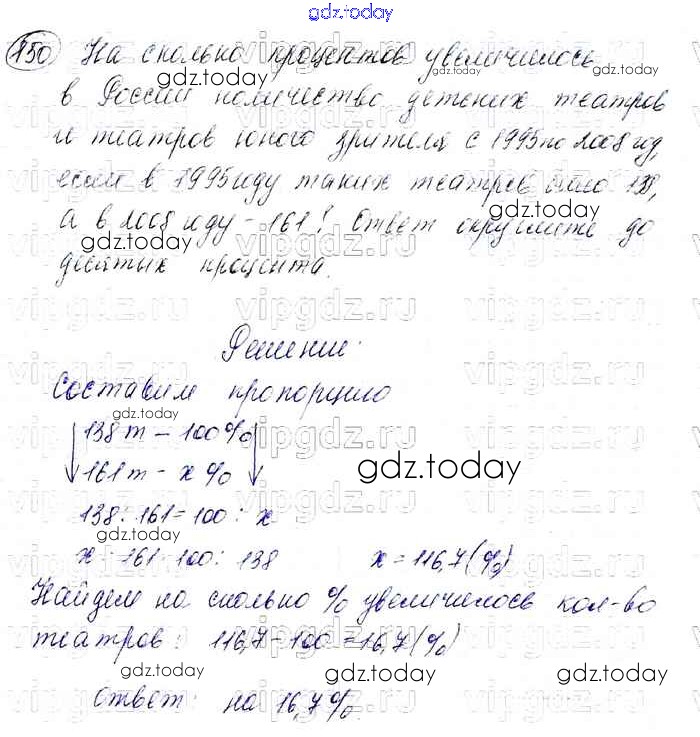 gdz.today
150 На сколько процентов увеличилось
gdz.today gdz.today
в России количество детских театров
и театров юного зрителя с 1995 по 2008 год,
если в 1995 году таких театров было 138,
а в 2008 году - 161? Ответ округлите до
gdz.today gdz.today
десятых процента.
Решение:
Составим пропорцию
gdz.today
138 т - 100%
161 т - x %
gdz.today
138 : 161 = 100 : x
gdz.today
x = 161 · 100 : 138 x = 116,7 (%)
Найдем на сколько % увеличилось кол-во
театров: 116,7 - 100 = 16,7 (%)
gdz.today gdz.today gdz.today
Ответ: на 16,7%.